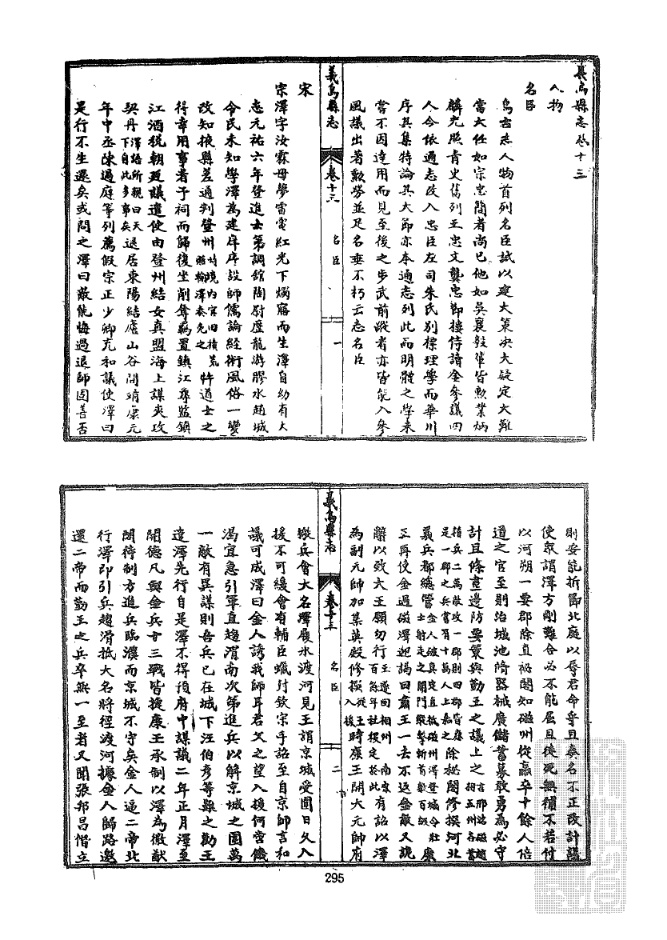 義烏縣志卷十三
人物
名臣
烏古志人物首列名臣試以建大策決大疑定大難
當大任如宗忠簡者尚已他如吳襄毅輩皆勲業炳
麟光照青史舊列王忠文龔忠節樓侍讀金參議四
人今依通志改入忠臣左司朱氏別標理學而華川
序其集特論其大節亦本通志列此而明體之學未
嘗不因達用而見至後之步武前蹤者亦皆能入參
風議出著勲勞並足名垂不朽云志名臣
義烏縣志
卷十三
名臣
一
宋
宗澤字汝霖母夢雷電紅光下燭寤而生澤自幼有大
志元祐六年登進士第調館陶尉歷龍游膠水趙城
令民未知學澤為建庠序設師儒論經術風俗一變
改知掖縣差通判登州
得幸用事者于祠而歸復坐削奪羇置鎮江尋監鎮
江酒稅朝廷議遣使由登州結女真盟海上謀夾攻
契丹澤語所親曰天下自此多事矣退居東陽結廬山谷間靖康元
年中丞陳過庭等列薦假宗正少卿充和議使澤曰
是行不生還矣或問之澤曰敵能悔過退師固善否
則安能折節北庭以辱君命乎且矣名不正改計議
使眾謂澤方剛難合必不能屈且徒死無補不若付
以河朔一要郡除直祕閣知磁州從羸卒十餘人倍
道之官至則治城池脩器械廣儲蓄募敢勇為必守
計且條畫邊防要策與勤王之議上之
除祕閣修撰河北
義兵都總管
王再使金過磁澤迎謁曰肅王一去不返金敵又詭
辭以致大王願勿行王遂回相州有詔以澤
為副元帥加集英殿修撰從王入援時康王開大元帥府
義烏縣志
卷十三
名臣
二
檄兵會大名澤履氷渡河見王謂京城受圍日久入
援不可緩會有輔臣蠟封欽宗手詔至自京師言和
議可成澤曰金人誘我師耳君父之望入援何啻饑
渴宜急引軍直趨澶南次第進兵以解京城之圍萬
一敵有異謀則吾兵已在城下汪伯彥等難之勸王
遣澤先行自是澤不得預府中謀議二年正月澤至
開德凡與金兵十三戰皆捷康王承制以澤為徽猷
閣待制方進兵臨濮而京城不守矣金人逼二帝北
行澤即引兵趨滑抵大名將徑渡河據金人歸路邀
還二帝而勤王之兵卒無一至者又聞張邦昌僭立
295